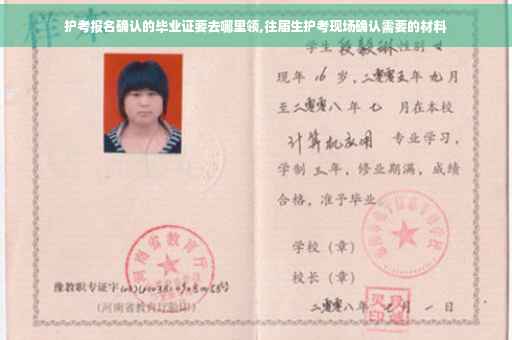 护考报名确认的毕业证要去哪里领,往届生护考现场确认需要的材料
样本
学生 段毅琳 性别 女
现年 16 岁,二零零五年 九月
至二零零八年 七 月在本校
计算机应用 专业学习,
学制 三年,修业期满,成绩
合格,准予毕业。
学校(章)
校长(章)
二零零八年 七 月 一 日
河南省教育厅
豫教职专证字
(河南省教育厅验印)